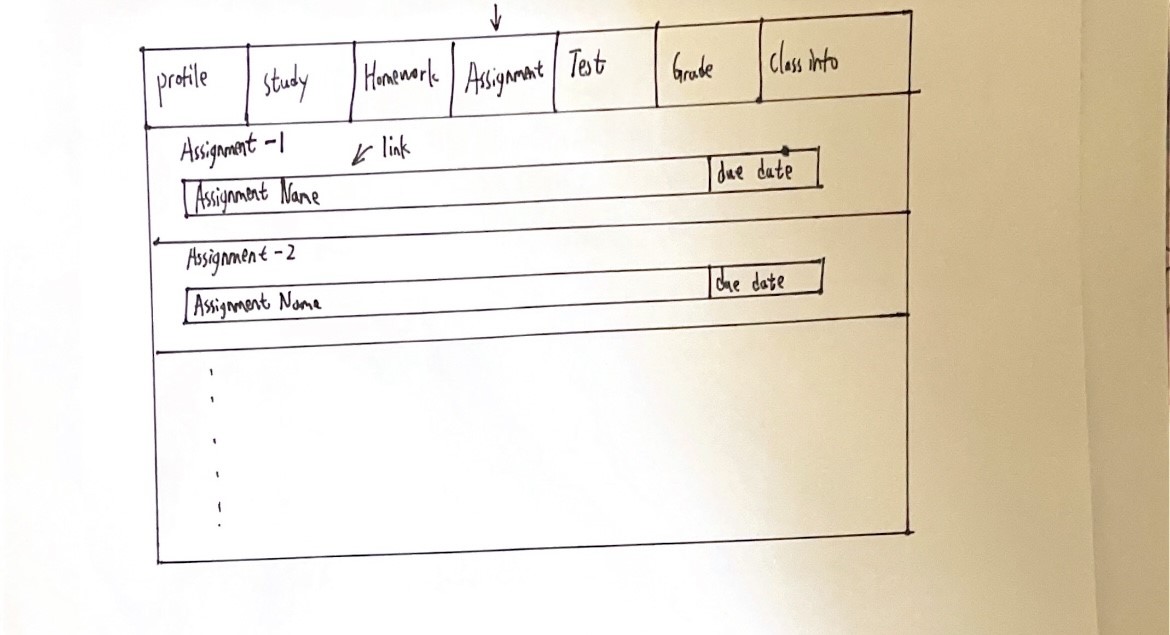 profile study Homework Assignment Test Grade Class info
Assignment-1
link
Assignment Name due date
Assignment-2
Assignment Name due date